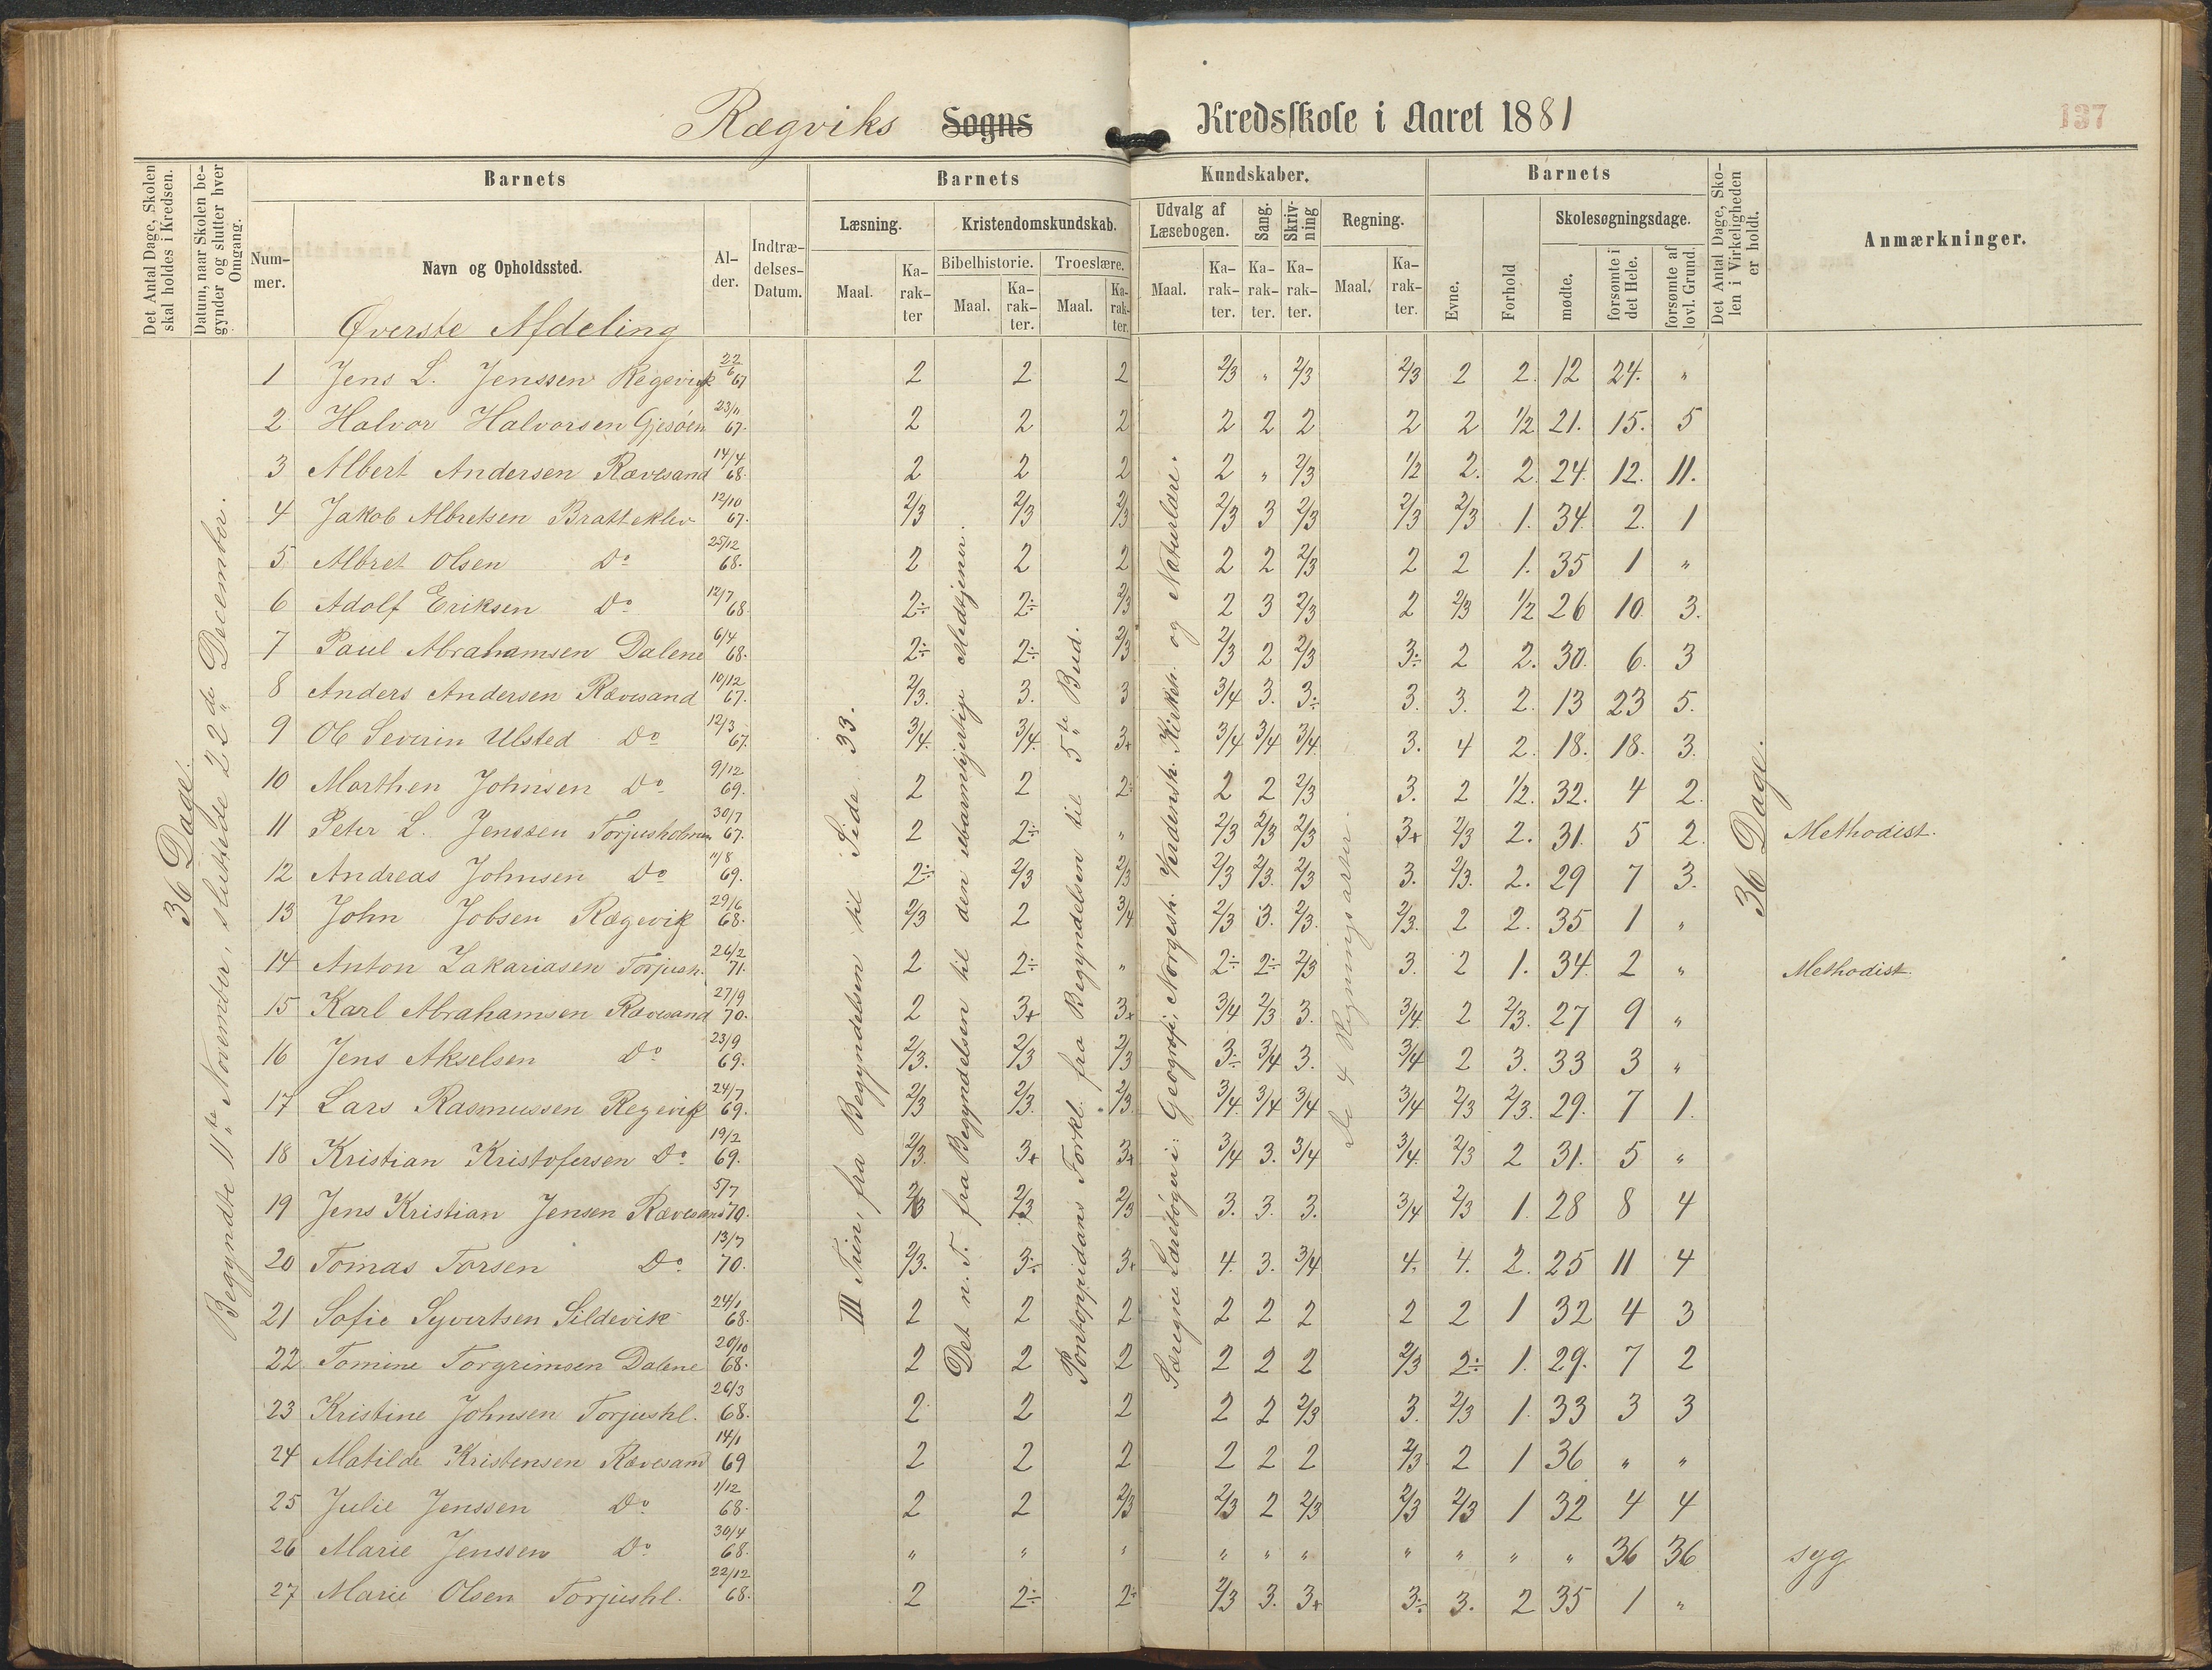 Rægviks Sogns Kredsskole i Aaret 1881
137
Det Antal Dage, Skolen skal holdes i Kredsen.
Datum, naar Skolen begynder og slutter hver Omgang.
Barnets
Barnets
Kundskaber.
Barnets
Det Antal Dage, Skolen i Virkeligheden er holdt.
Anmærkninger.
Nummer.
Navn og Opholdssted.
Alder.
Indtrædelses-Datum.
Læsning.
Kristendomskundskab.
Udvalg af Læsebogen.
Sang.
Skrivning
Regning.
Evne.
Forhold
Skolesøgningsdage.
Maal.
Karakter
Bibelhistorie.
Troeslære.
Maal.
Karakter.
Maal.
Karakter.
Maal.
Karakter.
Karakter.
Karakter.
Maal.
Karakter.
mødte.
forsømte i det Hele.
forsømte af lovl. Grund.
Øverste Afdeling
36 Dage.
Begyndte 11te November, sluttede 22de December.
III Trin, fra Begyndelsen til Side 33.
Det n. T. fra Begyndelsen til den ubarmhjertige Medtjener.
Pontoppidans Forkl. fra Begyndelsen til 5te Bud.
Særegne Lærebøger i: Geografi, Norgesh. Verdensh. Kirkeh. og Naturlære.
De 4 Regningsarter.
36 Dage.
1 Jens L. Jenssen Regevigk 22/6 67 2 2 2 2/3 " 2/3 2/3 2 2. 12 24. "
2 Halvor Halvorsen Gjesøen 23/11 67. 2 2 2 2 2 2 2 2 1/2 21. 15. 5
3 Albert Andersen Rævesand 14/4 68. 2 2 2 2 " 2/3 1/2 2. 2. 24. 12. 11.
4 Jakob Albretsen Bratteklev 12/10 67. 2/3 2/3 2/3 2/3 3 2/3 2/3 2/3 1. 34. 2. 1
5 Albret Olsen Do 25/12 68. 2 2 2 2 2 2/3 2 2 1. 35 1 "
6 Adolf Eriksen Do 12/7 68. 2÷ 2÷ 2/3 2 3 2/3 2 2/3 1/2 26 10. 3.
7 Paul Abrahamsen Dalene 6/4 68. 2÷ 2÷ 2/3 2/3 2 2/3 3÷ 2 2. 30. 6. 3
8 Anders Andersen Rævesand 10/12 67. 2/3. 3. 3 3/4 3. 3÷ 3. 3. 2. 13 23 5.
9 Ole Severin Ulsted Do 12/3 67. 3/4. 3/4. 3+ 3/4 3/4 3/4. 3. 4 2. 18. 18. 3.
10 Morthen Johnsen Do 9/12 69. 2 2 2÷ 2 2 2/3 3. 2 1/2. 32. 4 2.
11 Peter L. Jenssen Torjusholmen 30/7 67. 2 2÷ " 2/3 2/3 2/3 3+ 2/3 2. 31. 5 2. Methodist.
12 Andreas Johnsen Do 11/8 69. 2÷ 2/3 2/3 2/3 2/3. 2/3 3. 2/3. 2. 29 7 3.
13 John Jobsen Rægevik 29/6 68. 2/3 2 3/4 2/3 3. 2/3. 2/3. 2 2. 35 1 "
14 Anton Zakariasen Torjush. 26/2 71. 2 2÷ " 2÷ 2÷ 2/3 3. 2 1. 34. 2 " Methodist.
15 Karl Abrahamsen Rævesand 27/9 70. 2 3+ 3+ 3/4 2/3 3. 3/4. 2 2/3. 27 9 "
16 Jens Akselsen Do 23/9 69. 2/3. 2/3 2/3 3÷ 3/4 3. 3/4 2 3. 33 3 "
17 Lars Rasmussen Regevik 24/7 69. 2/3 2/3. 2/3. 3/4. 3/4 3/4 3/4 2/3 2/3. 29. 7 1.
18 Kristian Kristofersen Do 19/2 69. 2/3. 3+ 3+ 3/4 3. 3/4 3/4. 2/3 2 31. 5 "
19 Jens Kristian Jensen Rævesand 5/7 70. 2/3 2/3 2/3 3. 3. 3. 3/4 2/3 1. 28 8 4
20 Tomas Torsen Do 13/7 70. 2/3. 3÷ 3+ 4. 3. 3/4 4. 4. 2. 25 11 4
21 Sofie Syvertsen Sildevik 24/1 68. 2 2 2 2 2 2 2 2 1 32 4 3
22 Tomine Torgrimsen Dalene 20/10 68. 2 2 2 2 2 2 2/3 2÷ 1. 29. 7 2
23 Kristine Johnsen Torjushl. 26/3 68. 2 2 2 2 2 2/3 3. 2/3 1. 33 3 3
24 Matilde Kristensen Rævesand 14/1 69 2 2 2 2 2 2 2/3 2 1 36 " "
25 Julie Jenssen Do 1/12 68. 2 2 2/3 2/3 2 2/3 2/3 2/3 1 32 4 4
26 Marie Jenssen Do 30/4 68. " " " " " " " " " " 36 36 syg
27 Marie Olsen Torjushl. 22/12 68. 2 2÷ 2÷ 2/3 3. 3+ 3÷ 3. 2 35 1 "